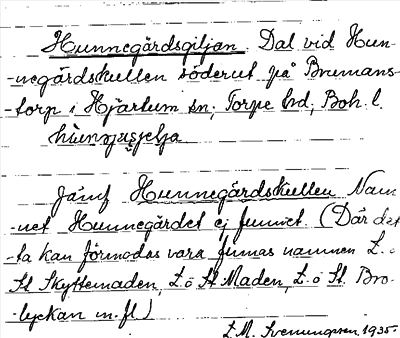 Hunnegärdsgiljan. Dal vid Hun-
-negärdskullen söderut på Brumans-
-torp i Hjärtum sn; Torpe hd; Boh. l.
Jämf Hunnegärdskullen Nam-
net Hunnegärdet ej funnet. (Där det-
-ta kan förmodas vara finnas namnen L. o
St Skyttemaden, L. o St Maden, L. o St. Bro-
-lyckan m.fl)
E.M. Svenungsson 1935.